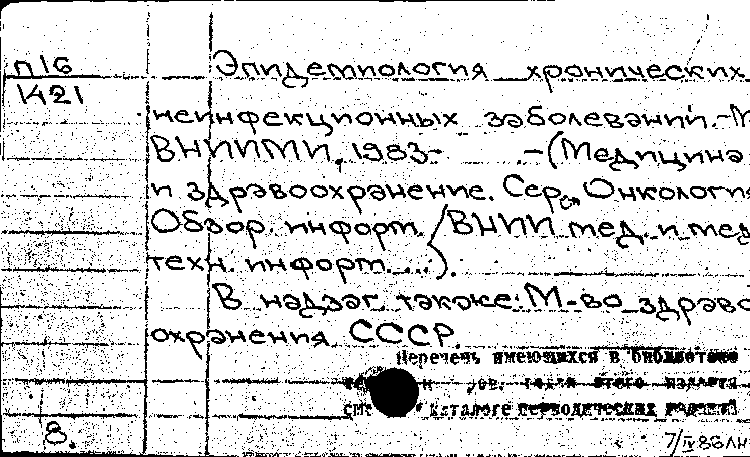 П16
1421
Эпидемиология хронических
неинфекционных заболеваний.-М
ВНИИМИ, 1983- -(Медицина
и здравоохранение. Сер. Онкология
Обзор. информ. /ВНИИ мед. и мед
техн. информ....).
В надзаг. также: М-во здраво
охранения СССР.
Перечень имеющихся в библиотеке
этого издания
каталоге периодических изданий
8.
7/IV 86